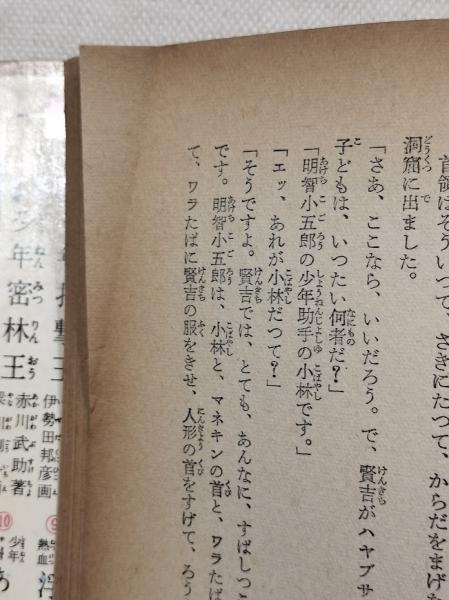 首領はそういつて、さきにたつて、からだをまげ
洞窟に出ました。
「さあ、ここなら、いいだろう。で、賢吉がハヤブサ
子どもは、いつたい何者だ?」
「明智小五郎の少年助手の小林です。」
「エッ、あれが小林だつて?」
「そうですよ。賢吉では、とても、あんなに、すばしつこ
です。明智小五郎は、小林と、マネキンの首と、ワラたば
て、ワラたばに賢吉の服をきせ、人形の首をすげて、ろう
伊勢田邦彦画
年密林王
赤川武助著
⑨
熱血
⑩
少年